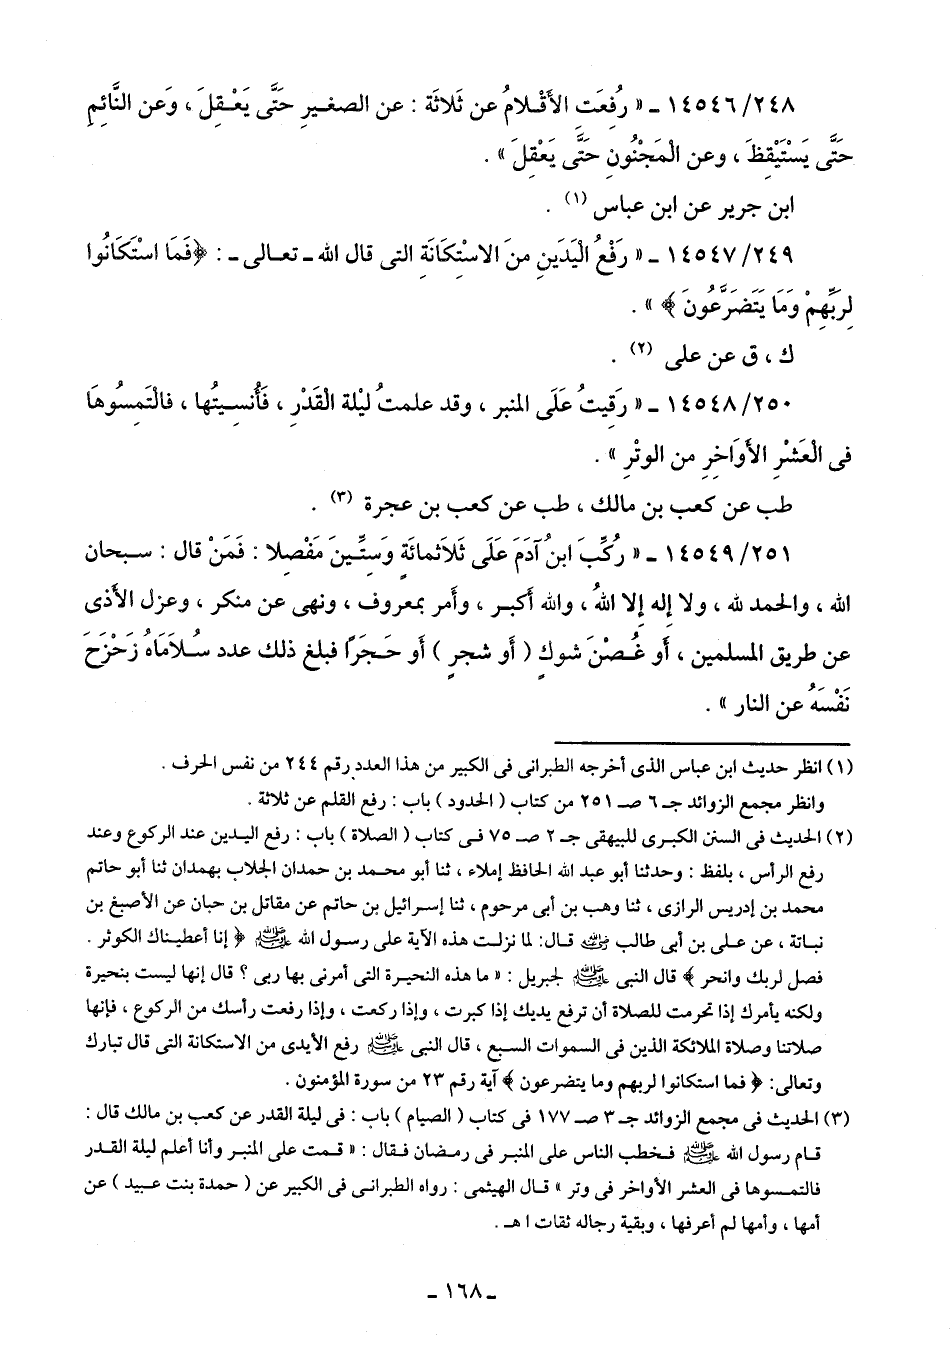 ١٤٥٤٦/٢٤٨ ـ « رُفعَت الأَقْلامُ عن ثَلاثَة : عن الصغيرِ حتَّى يَعْقلَ ، وَعن النَّائمِ
حتَّى يَسْتَيْقِظَ ، وعن الْمَجْنُونِ حتَّى يَعْقِلَ » .
ابن جرير عن ابن عباس (١) .
١٤٥٤٧/٢٤٩ ـ « رَفْعُ الْيَدَينِ منَ الاسْتِكَانَةِ التى قال الله ـ تعالى ـ : ﴿فَمَا اسْتَكَانُوا
لِرَبِّهِمْ وَمَا يَتَضَرَّعُونَ ﴾ » .
ك ، ق عن على (٢) .
١٤٥٤٨/٢٥٠ ـ « رَقيتُ عَلَى المنبر ، وقد علمتُ لَيْلةَ الْقَدْرِ ، فَأُنسيتُها ، فالْتَمِسُوهَا
فى الْعَشْرِ الأَوَاخِرِ من الوِتْرِ » .
طب عن كعب بن مالك ، طب عن كعب بن عجرة (٣) .
١٤٥٤٩/٢٥١ ـ « رُكِّبَ ابنُ آدَمَ عَلَى ثَلاَثمائَةٍ وَستِّينَ مَفْصلا : فَمَنْ قال : سبحان
الله ، والحمد لله ، ولا إله إلا اللهُ ، والله أكبر ، وأمر بمعروف ، ونهى عن منكر ، وعزل الأذى
عن طريق المسلمين ، أو غُصْنَ شوكٍ ( أو شجرٍ ) أو حَجَرًا فبلغ ذلك عدد سُلاَمَاهُ زَحْزَحَ
نَفْسَهُ عن النار » .
(١) انظر حديث ابن عباس الذى أخرجه الطبرانى فى الكبير من هذا العدد رقم ٢٤٤ من نفس الحرف .
وانظر مجمع الزوائد جـ ٦ صـ ٢٥١ من كتاب ( الحدود ) باب : رفع القلم عن ثلاثة .
(٢) الحديث فى السنن الكبرى للبيهقى جـ ٢ صـ ٧٥ فى كتاب ( الصلاة ) باب : رفع اليدين عند الركوع وعند
رفع الرأس ، بلفظ : وحدثنا أبو عبد الله الحافظ إملاء ، ثنا أبو محمد بن حمدان الجلاب بهمدان ثنا أبو حاتم
محمد بن إدريس الرازى ، ثنا وهب بن أبى مرحوم ، ثنا إسرائيل بن حاتم عن مقاتل بن حبان عن الأصبغ بن
نباتة ، عن على بن أبى طالب رضي الله عنه قال: لما نزلت هذه الآية على رسول الله ﷺ ﴿ إنا أعطيناك الكوثر .
فصل لربك وانحر ﴾ قال النبى ﷺ لجبريل : « ما هذه النحيرة التى أمرنى بها ربى ؟ قال إنها ليست بنحيرة
ولكنه يأمرك إذا تحرمت للصلاة أن ترفع يديك إذا كبرت ، وإذا ركعت ، وإذا رفعت رأسك من الركوع ، فإنها
صلاتنا وصلاة الملائكة الذين فى السموات السبع ، قال النبى ﷺ رفع الأيدى من الاستكانة التى قال تبارك
وتعالى: ﴿ فما استكانوا لربهم وما يتضرعون ﴾ آية رقم ٢٣ من سورة المؤمنون .
(٣) الحديث فى مجمع الزوائد جـ ٣ صـ ١٧٧ فى كتاب ( الصيام ) باب : فى ليلة القدر عن كعب بن مالك قال :
قام رسول الله ﷺ فخطب الناس على المنبر فى رمضان فقال : « قمت على المنبر وأنا أعلم ليلة القدر
فالتمسوها فى العشر الأواخر فى وتر » قال الهيثمى : رواه الطبرانى فى الكبير عن ( حمدة بنت عبيد ) عن
أمها ، وأمها لم أعرفها ، وبقية رجاله ثقات ا هـ .
ـ ١٦٨ ـ